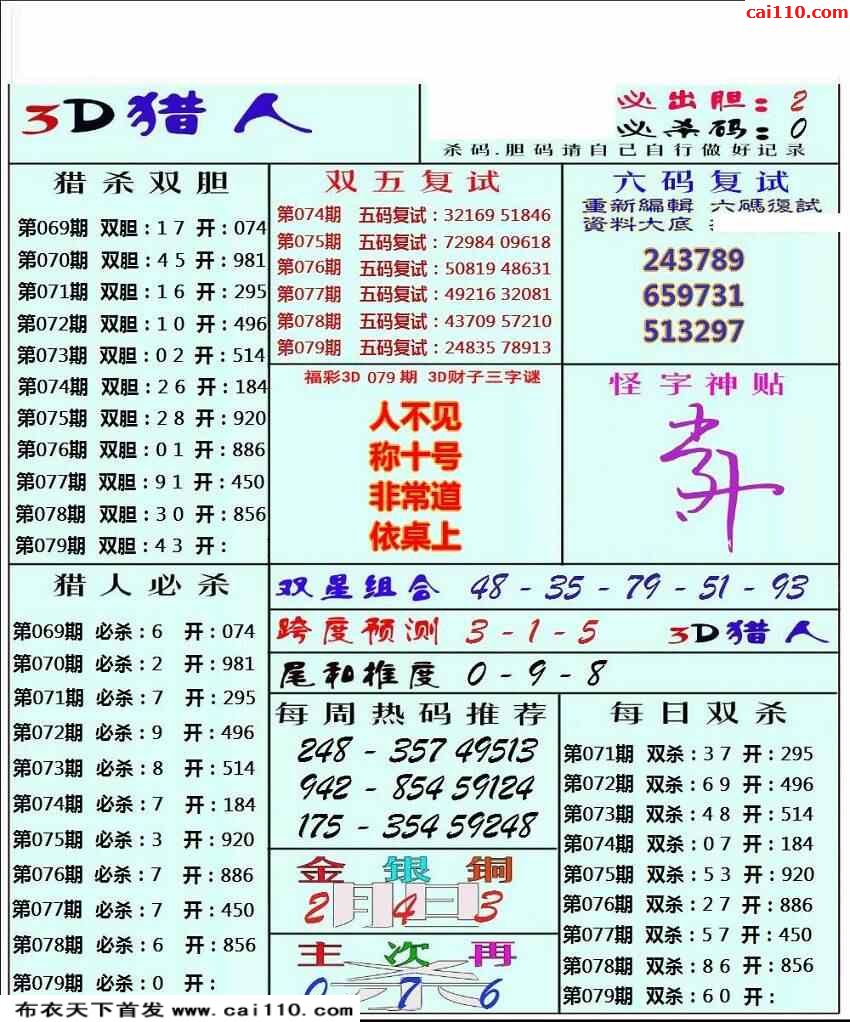 cai110.com
3D猎人
必出胆：2
必杀码：0
杀码.胆码请自己自行做好记录
猎杀双胆
第069期 双胆：1 7 开：074
第070期 双胆：4 5 开：981
第071期 双胆：1 6 开：295
第072期 双胆：1 0 开：496
第073期 双胆：0 2 开：514
第074期 双胆：2 6 开：184
第075期 双胆：2 8 开：920
第076期 双胆：0 1 开：886
第077期 双胆：9 1 开：450
第078期 双胆：3 0 开：856
第079期 双胆：4 3 开：
双五复试
第074期 五码复试：32169 51846
第075期 五码复试：72984 09618
第076期 五码复试：50819 48631
第077期 五码复试：49216 32081
第078期 五码复试：43709 57210
第079期 五码复试：24835 78913
六码复试
重新編輯 六碼復試
資料大底
243789
659731
513297
福彩3D 079期 3D财子三字谜
人不见
称十号
非常道
依桌上
怪字神贴
猎人必杀
第069期 必杀：6 开：074
第070期 必杀：2 开：981
第071期 必杀：7 开：295
第072期 必杀：9 开：496
第073期 必杀：8 开：514
第074期 必杀：7 开：184
第075期 必杀：3 开：920
第076期 必杀：7 开：886
第077期 必杀：7 开：450
第078期 必杀：6 开：856
第079期 必杀：0 开：
双星组合 48 - 35 - 79 - 51 - 93
跨度预测 3 - 1 - 5 3D猎人
尾和推度 0 - 9 - 8
每周热码推荐
248 - 357 49513
942 - 854 59124
175 - 354 59248
金银铜
2 4 3
主次再
0 7 6
每日双杀
第071期 双杀：3 7 开：295
第072期 双杀：6 9 开：496
第073期 双杀：4 8 开：514
第074期 双杀：0 7 开：184
第075期 双杀：5 3 开：920
第076期 双杀：2 7 开：886
第077期 双杀：5 7 开：450
第078期 双杀：8 6 开：856
第079期 双杀：6 0 开：
布衣天下首发 www.cai110.com